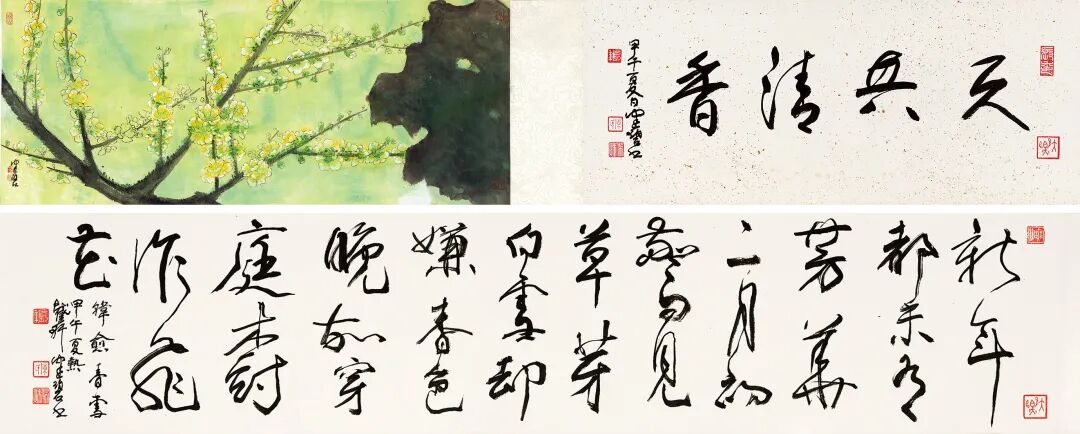 天與清香
甲午夏日
新年
都未有
芳華
二月初
驚見
草芽
白雪却
嫌春色
晚故穿
庭樹
作飛
花
韓愈春雪
甲午夏熱